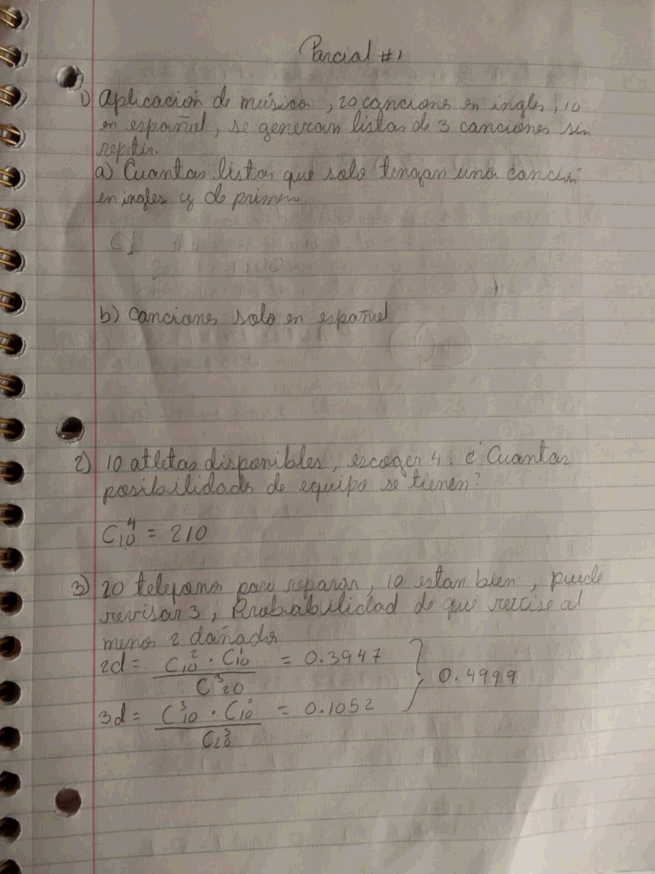 Parcial #1
1) Aplicación de música, 20 canciones en ingles, 10
en español, se generan listas de 3 canciones sin
repetir.
a) Cuantas listas que solo tengan una canción
en ingles y de primera
b) Canciones solo en español
2) 10 atletas disponibles, escoger 4. ¿Cuantas
posibilidades de equipo se tienen?
C₁₀⁴ = 210
3) 20 telefonos para reparar, 10 estan bien, puede
revisar 3, Probabilidad de que revise al
menos 2 dañados
2d = C₁₀² · C₁₀¹ / C₂₀³ = 0.3947 } 0.4999
3d = C₁₀³ · C₁₀⁰ / C₂₀³ = 0.1052